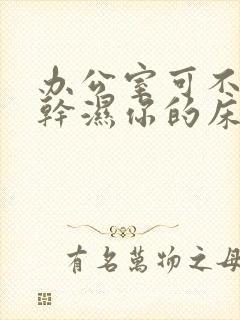 办公室可不
幹濕你的床
有名萬物之母